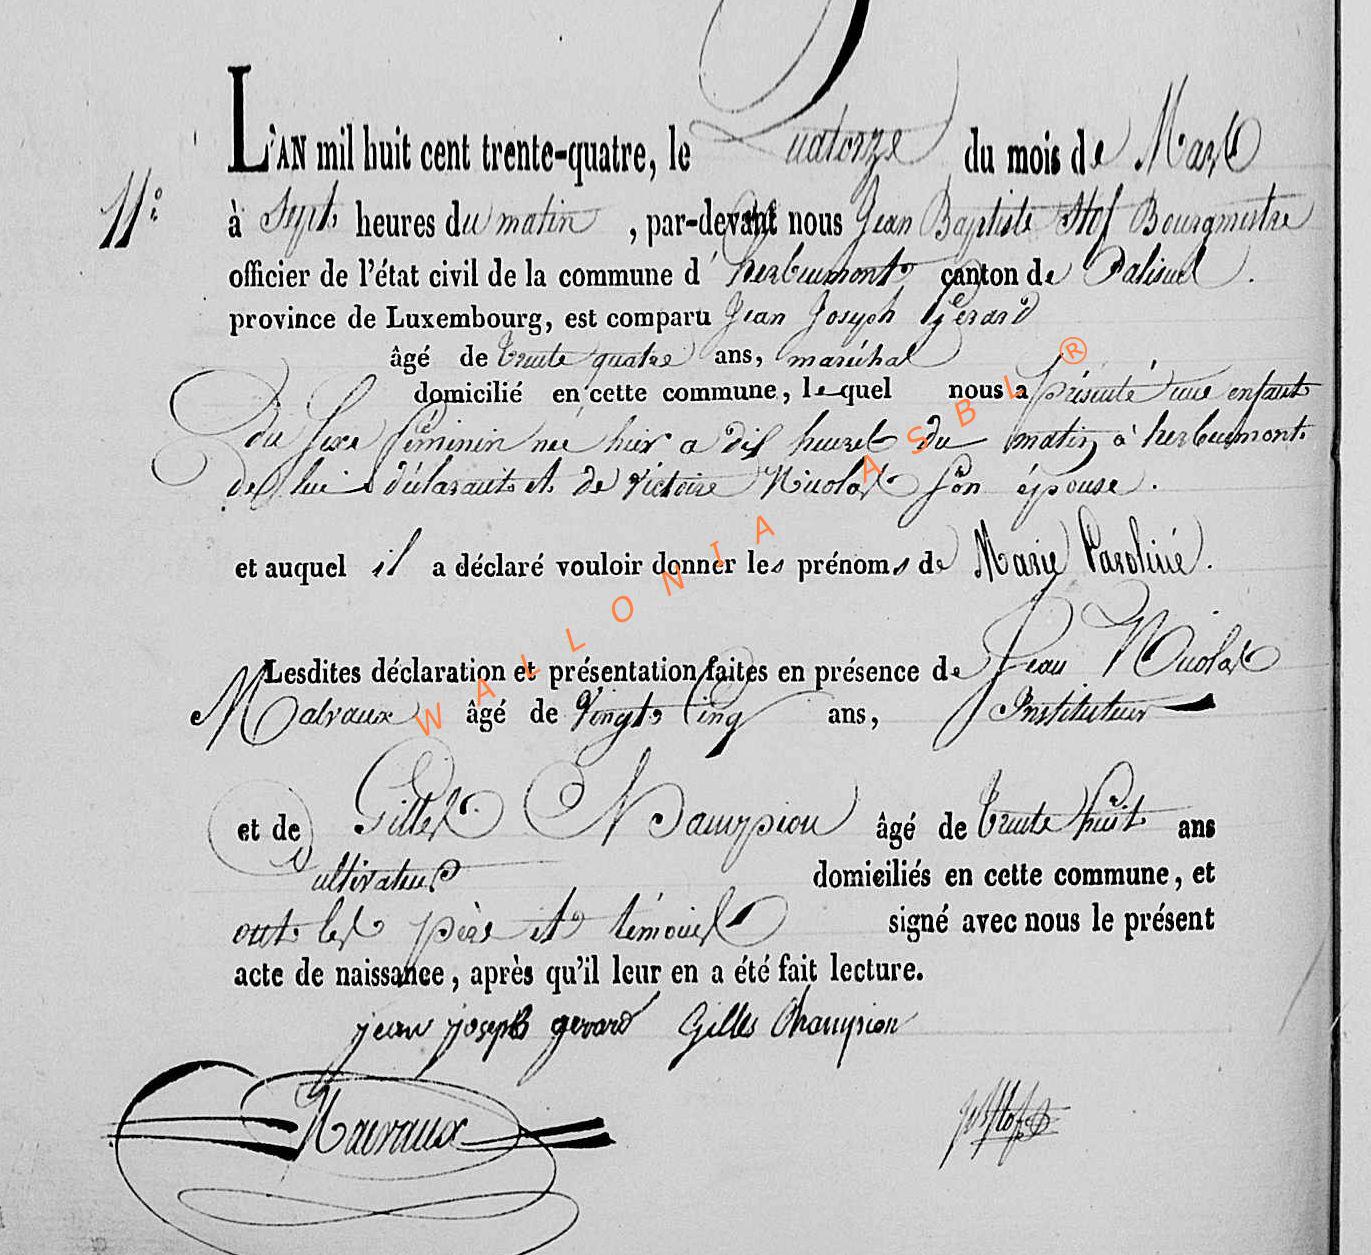 L'AN mil huit cent trente-quatre, le Quatorze du mois de Mars
11e
à Sept heures du matin, par-devant nous Jean Baptiste Stof Bourgmestre
officier de l'état civil de la commune d'herbeumont canton de Paliseul.
province de Luxembourg, est comparu Jean Joseph Gérard
âgé de trente quatre ans, maréchal
domicilié en cette commune, lequel nous a présenté une enfant
du sexe féminin née hier a dix heures du matin, à herbeumont
de lui déclarant et de Victoire Nicolas son épouse.
et auquel il a déclaré vouloir donner les prénoms de Marie Caroline.
Lesdites déclaration et présentation faites en présence de Jean Nicolas
Malvaux âgé de Vingt Cinq ans, Instituteur
et de Gilles Champion âgé de trente huit ans
Cultivateur domiciliés en cette commune, et
ont les père et témoins signé avec nous le présent
acte de naissance, après qu'il leur en a été fait lecture.
jean joseph gerard Gilles Champion
Malvaux
WALLONIA ASBL ®